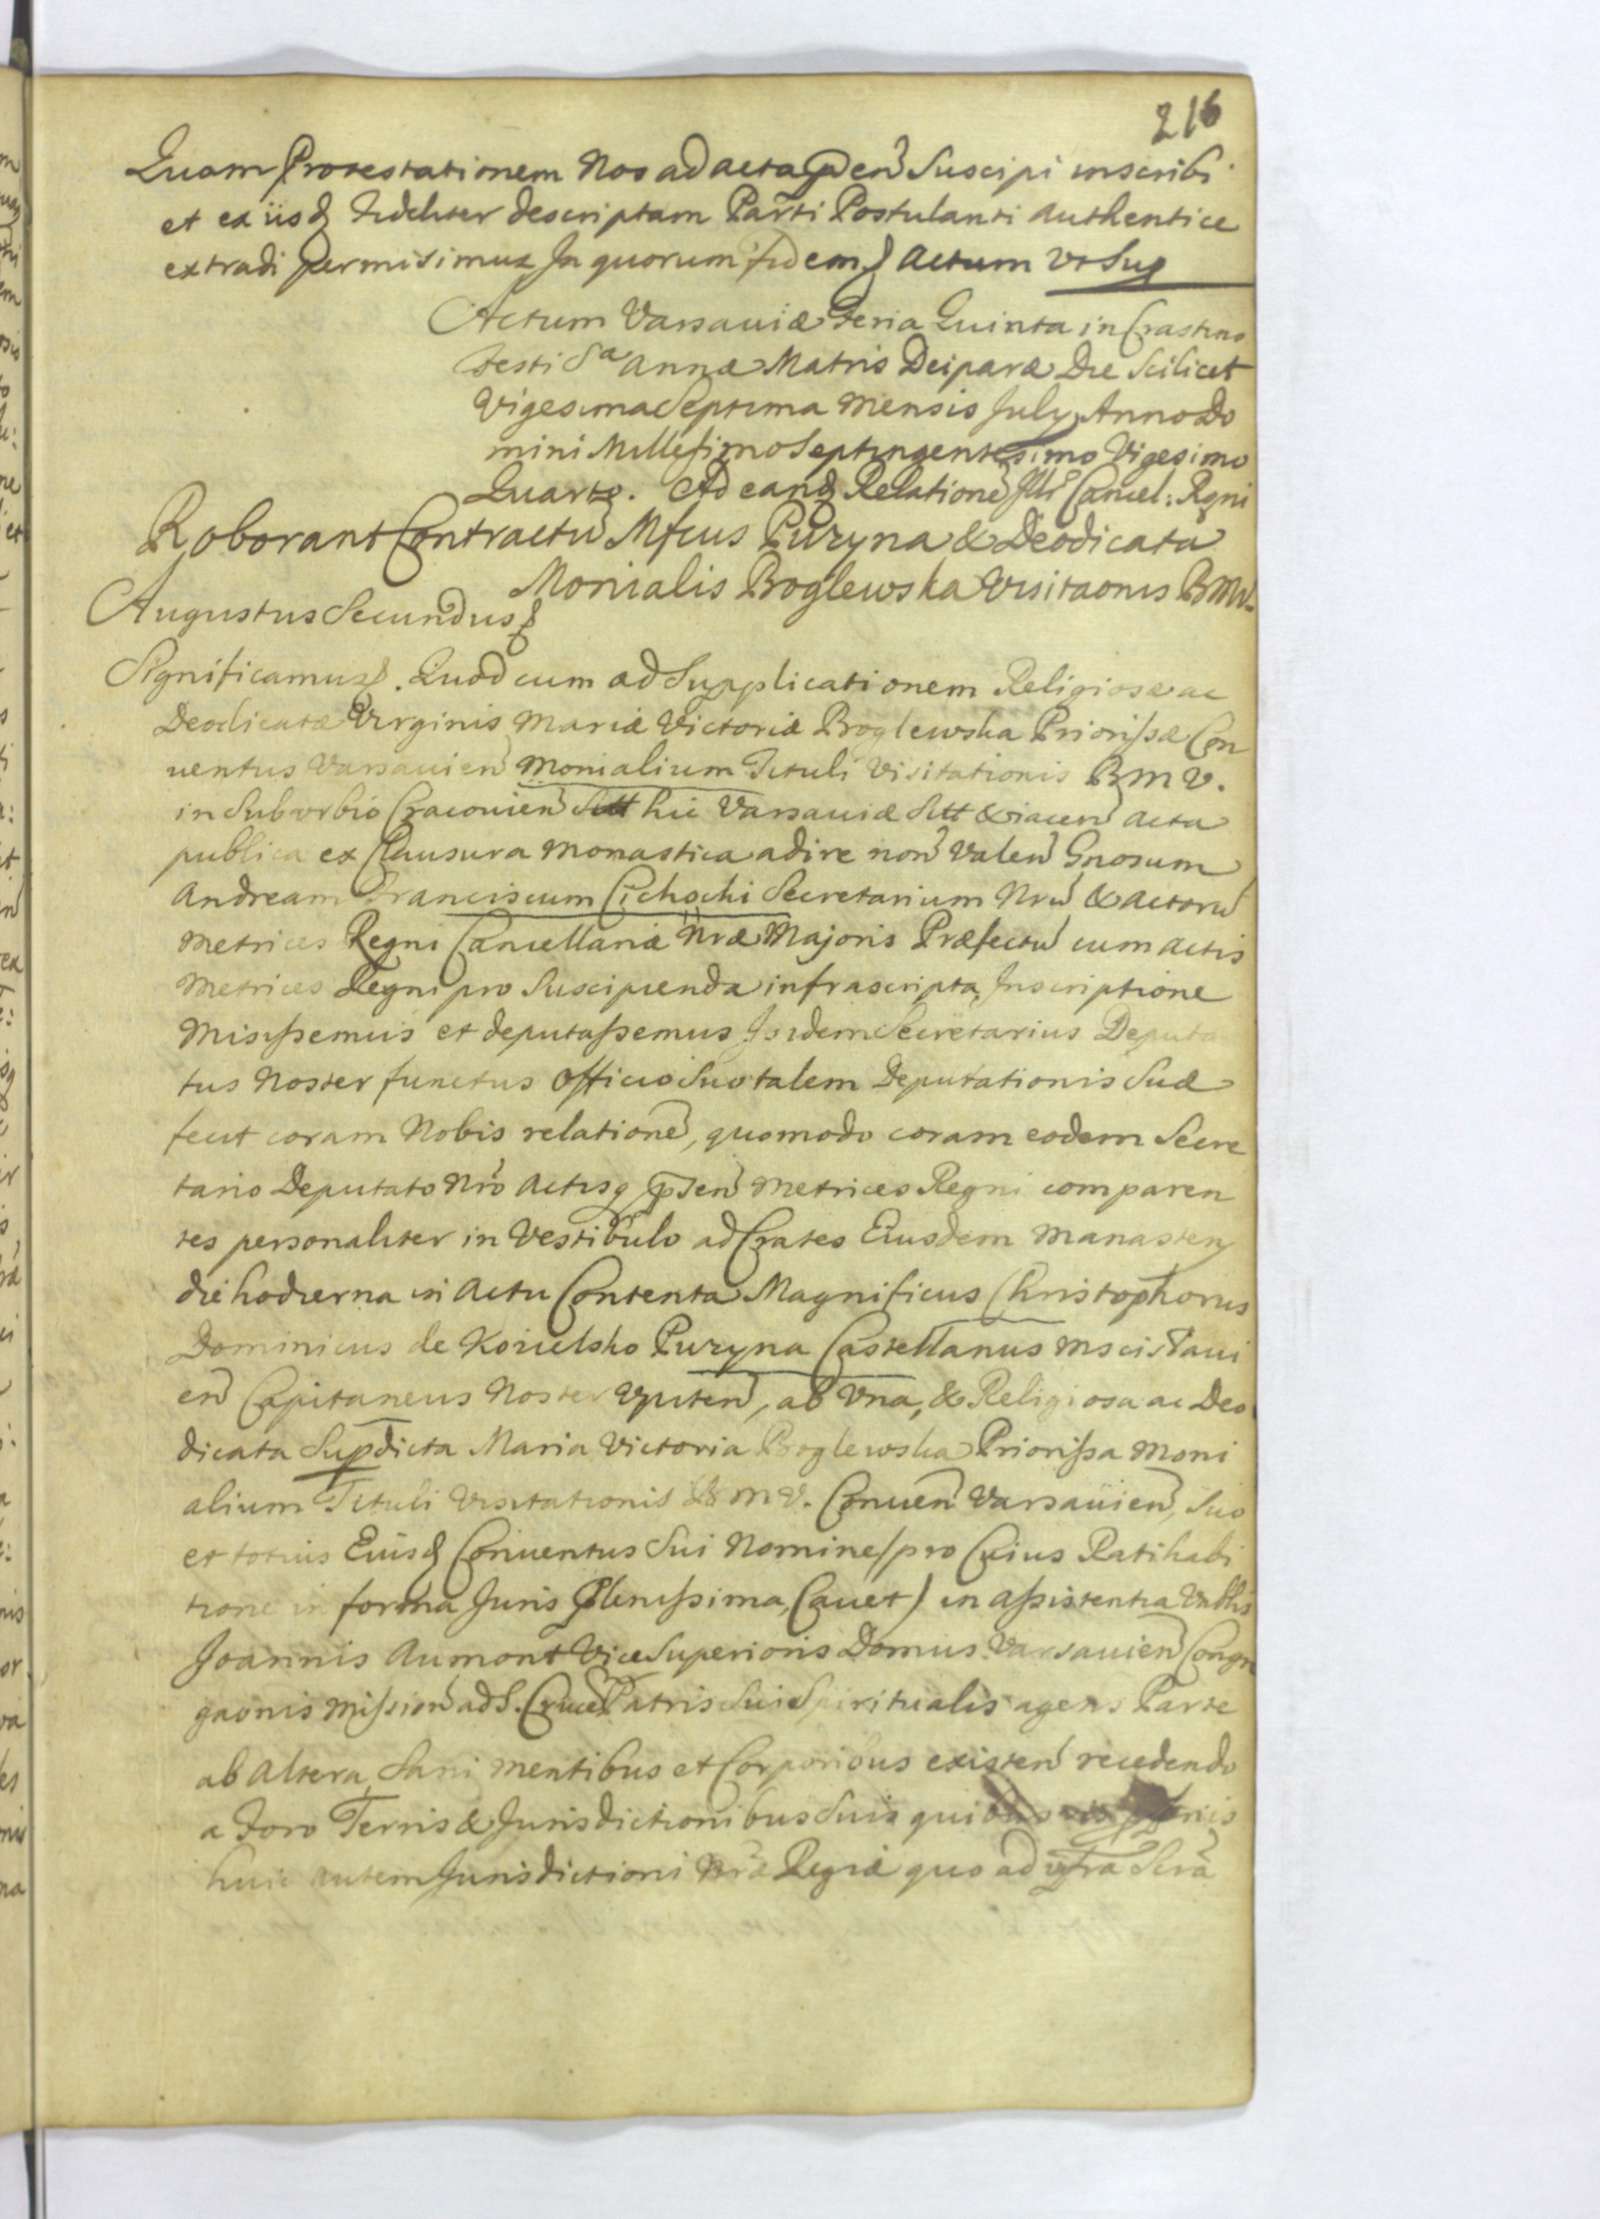 216
Quam Protestationem Nos ad acta pñ Suscipi inscribi
et ex iisq fideliter descriptam Parti Postulanti Authentice
extradi permisimus In quorum fidem Actum Vt Sup
Actum Varsaviæ Feria Quinta in Crastino
Festi Sᵃ Annæ Matris Deiparæ Die Scilicet
Vigesima Septima Mensis July Anno Do
mini Millesimo Septingentesimo Vigesimo
Quarto. Ad eand Relationē Cancel: Rgni
Roborant Contractū Mfcus Puzyna & Deodicata
Monialis Boglewska Visitaonis BMV.
Augustus Secundus
Significamus. Quod cum ad Supplicationem Religiosæ ac
Deodicatæ Virginis Mariæ Victoriæ Boglewska Priorissæ Con
uentus Varsauien Monialium Tituli Visitationis B M V.
in Suburbio Cracouien hic Varsauiæ Sitt & iacen acta
publica ex Clausura Monastica adire non Valen Gnosum
Andream Franciscum Cichocki Secretarium Nrū & Actorū
Metrices Regni Cancellariæ Nræ Majoris Præfectū cum actis
Metrices Regni pro Suscipienda infrascripta Inscriptione
Misissemus et deputassemus Isidem Secretarius Deputa
tus Noster functus officio Suo talem Deputationis Suæ
fecit coram Nobis relationē, quomodo coram eodem Secre
tario Deputato Nrō Actisq pñ Metrices Regni comparen
tes personaliter in Vestibulo ad Crates Eiusdem Manastery
die hodierna in Actu Contenta Magnificus Christophorus
Dominicus de Kozielsko Puzyna Castellanus Mscislaui
en Capitaneus Noster Upiten, ab Vna, & Religiosa ac Deo
dicata Supdicta Maria Victoria Boglewska Priorissa Moni
alium Tituli Visitationis B M V. Conuen Varsauien, Suo
et totius Eiusd Conuentus Sui Nomine /pro Cuius Ratihabi
tione in forma Juris Plenissima, Cauet/ in assistentia Vnblis
Joannis Aumont Vice Superioris Domus Varsauien Congre
gaonis Mission ad S. Crucē Patris Sui Spiritualis agens Parte
ab Altera, Sani Mentibus et Corporibus existen recedendo
a Foro Terris & Jurisdictionibus Suis quibusvis pprijs
huic autem Jurisdictioni Nræ Regiæ quo ad infra Scrā